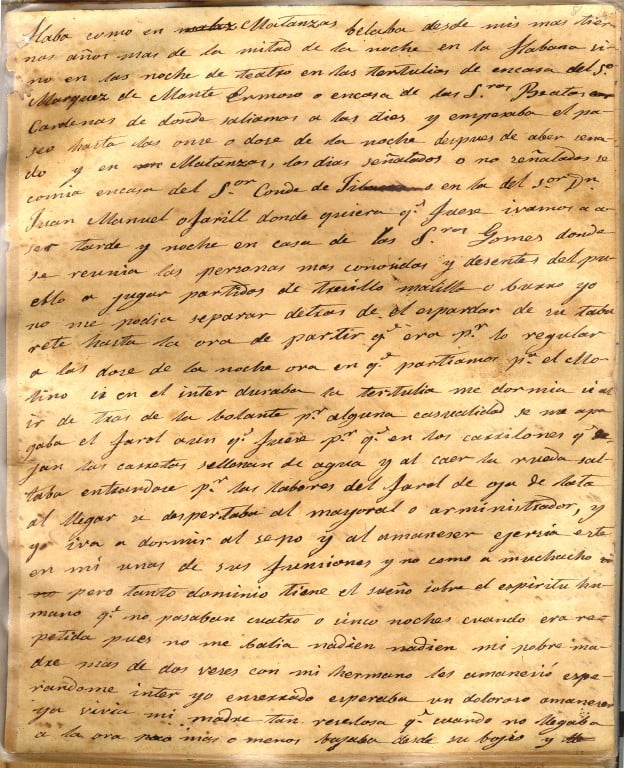 Llaba como en Matanzas belaba desde mis mas tier
nos años mas de la mitad de la noche en la Habana si
no en las noche de teatro en las tertulias de encasa del S.or
Marquez de Monte Ermoso o encasa de las S.ras Beatas
Cardenas de donde saliamos a las dies y empesaba el pa
seo hasta las onse o dose de la noche despues de aber sena
do y en Matanzas, los dias señalados o no señalados se
comia encasa del S.or Conde de o en la del S.or Dn.
Juan Manuel Ofarill donde quiera q.e fuese ivamos a a
ser tarde y noche en casa de las S.ras Gomes donde
se reunia las personas mas conosidas y desentes del pu
eblo a jugar partidos de tresillo matillo o burro yo
no me podia separar detras de el espardar de su tabu
rete hasta la ora de partir q.e era p.r lo regular
a las dose de la noche ora en q.e partiamos p.a el Mo
lino si en el inter duraba la tertulia me dormia si al
ir de tras de la bolante p.r alguna casualidad se me apa
gaba el farol aun q.e fuese p.r q.e en los carrilones q.e de
jan las carretas se llenan de agua y al caer la rueda sal
taba entrandose p.r las labores del farol de oja de lata
al llegar se despertaba al mayoral o arministrador, y
yo iva a dormir al sepo y al amaneser ejersia este
en mi unas de sus funsiones y no como a muchacho
pero tanto dominio tiene el sueño sobre el espiritu hu
mano q.e no pasaban cuatro o sinco noches cuando era re
petida pues no me balia nadien nadien mi pobre ma
dre mas de dos veses con mi hermano les amanesió espe
randome inter yo enserrado esperaba un doloroso amaneser
ya vivia mi madre tan reselosa q.e cuando no llegaba
a la ora mas o menos bajaba desde su bojio y